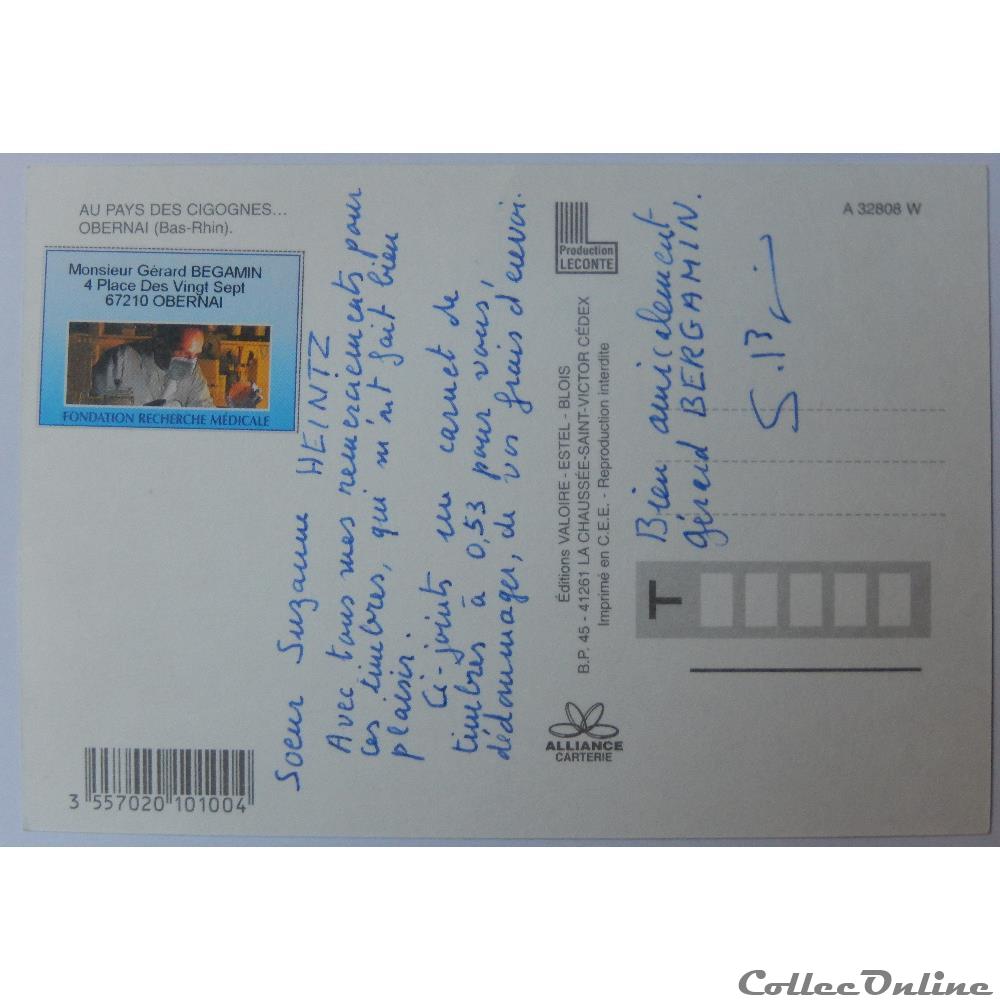 AU PAYS DES CIGOGNES...
OBERNAI (Bas-Rhin).
Monsieur Gérard BEGAMIN
4 Place Des Vingt Sept
67210 OBERNAI
FONDATION RECHERCHE MÉDICALE
Soeur Suzanne HEINTZ
Avec tous mes remerciements pour
ces timbres, qui m'nt fait bien
plaisir.
Ci-joints un carnet de
timbres à 0,53 pour vous,
dédommager, de vos frais d'envoi.
3 557020 101004
Production
LECONTE
Éditions VALOIRE - ESTEL - BLOIS
B.P. 45 - 41261 LA CHAUSSÉE-SAINT-VICTOR CÉDEX
Imprimé en C.E.E. - Reproduction interdite
ALLIANCE
CARTERIE
A 32808 W
Bien amicalement
Gérard BERGAMIN.
T
CollecOnline